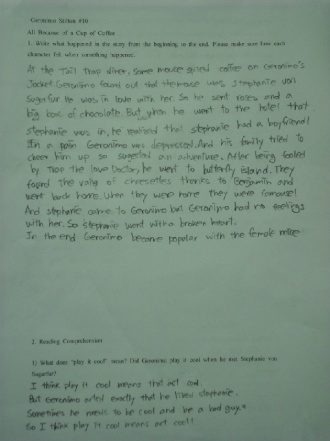 Geronimo Stilton #10
All Because of a Cup of Coffee
1. Write what happened in the story from the beginning to the end. Please make sure how each
character felt when something happened.
At the Tail Trap diner, some mouse spilled coffee on Geronimo's
Jacket. Geronimo found out that the mouse was Stephanie von
Sugarfur. He was in love with her. So he sent roses and a
big box of chocolate. But when he went to the hotel that
Stephanie was in, he realized that Stephanie had a boyfriend!
In a pain Geronimo was depressed. And his family tried to
cheer him up so suggested an adventure. After being fooled
by the love doctor, he went to butterfly island. They
found the valley of cheesettes thanks to Benjamin and
went back home. When they were home they were famous!
And Stephanie came to Geronimo but Geronimo had no feelings
with her. So Stephanie went with a broken heart.
In the end Geronimo became popular with the female
2. Reading Comprehension
1) What does "play it cool" mean? Did Geronimo play it cool when he met Stephanie von
Sugarfur?
I think play it cool means that act cool.
But Geronimo acted exactly that he liked Stephanie.
Sometimes he needs to be cool and be a bad guy.
So I think play it cool means act cool!